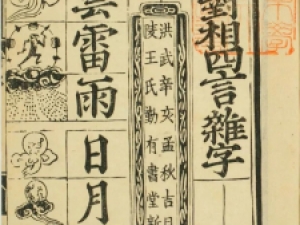 對相四言雜字
洪武辛亥孟秋吉日
陵王氏勤有書堂新
雲雷雨
日月